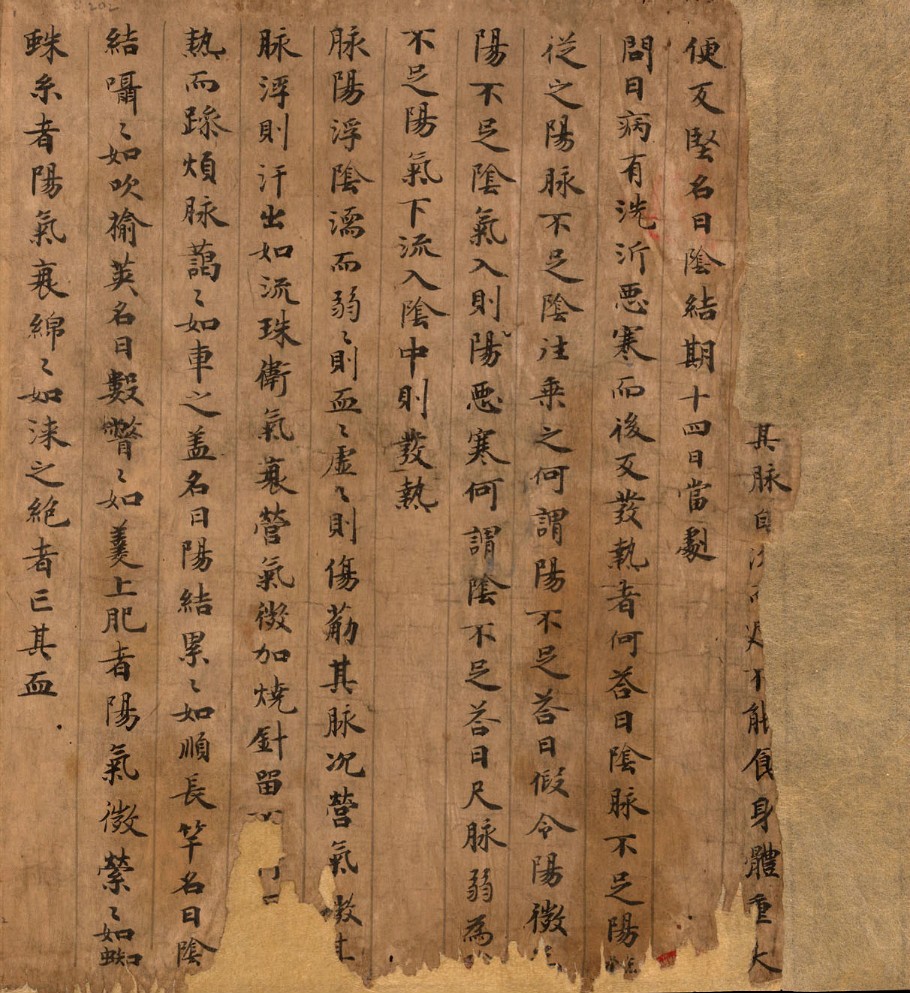 其脉自沉不能食身體重大
便反堅名曰陰結期十四日當劇
問曰病有洗泝悪寒而後反發𤍠者何荅曰陰脉不足陽
從之陽脉不足陰往乗之何謂陽不足荅曰假令陽微
陽不足陰氣入則陽悪寒何謂陰不足荅曰尺脉弱為
不足陽氣下流入陰中則發𤍠
脉陽浮陰濡而弱〻則血〻虛〻則傷筋其脉沉營氣微
脉浮則汗出如流珠衛氣衰營氣微加燒針留
𤍠而躁煩脉藹〻如車之盖名曰陽結累〻如順長竿名曰陰
結囁〻如吹榆莢名曰數瞥〻如羹上肥者陽氣微縈〻如蜘
蛛糸者陽氣衰綿〻如漆之絶者亡其血